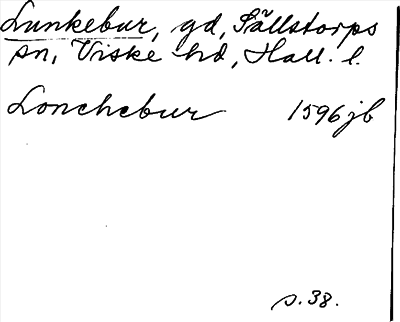 Lunkebur, gd, Sällstorps
sn, Viske hd, Hall. l.
Lonchebur 1596 jb
s. 38.